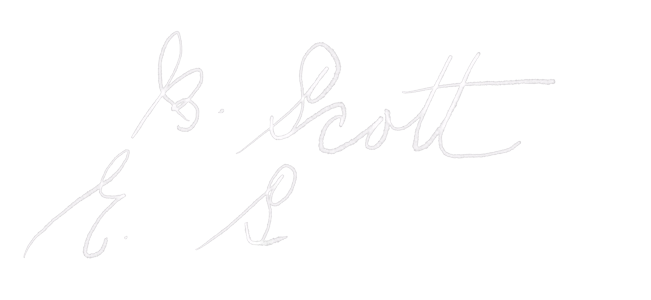 G. Scott
E. S